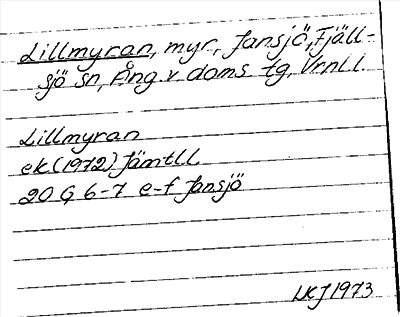 Lillmyran, myr, Jansjö, Fjäll-
sjö sn, Ång. v. doms tg, Vrnll.
Lillmyran
ek (1972) Jämtll.
20 G 6-7 e-f Jansjö
LKJ 1973